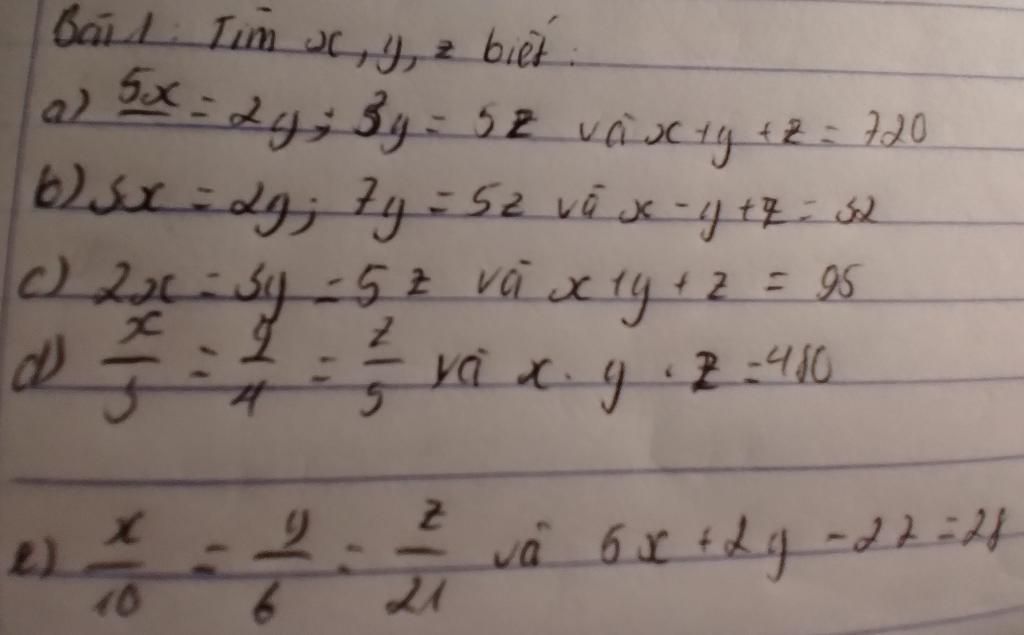 Bài 1: Tìm x, y, z biết:
a) 5x = 2y; 3y = 5z và x+y+z = 720
b) 3x = 2y; 7y = 5z và x-y+z = 32
c) 2x = 3y = 5z và x+y+z = 95
d) x/3 = y/4 = z/5 và x.y.z = 480
e) x/10 = y/6 = z/21 và 5x+2y-2z=28